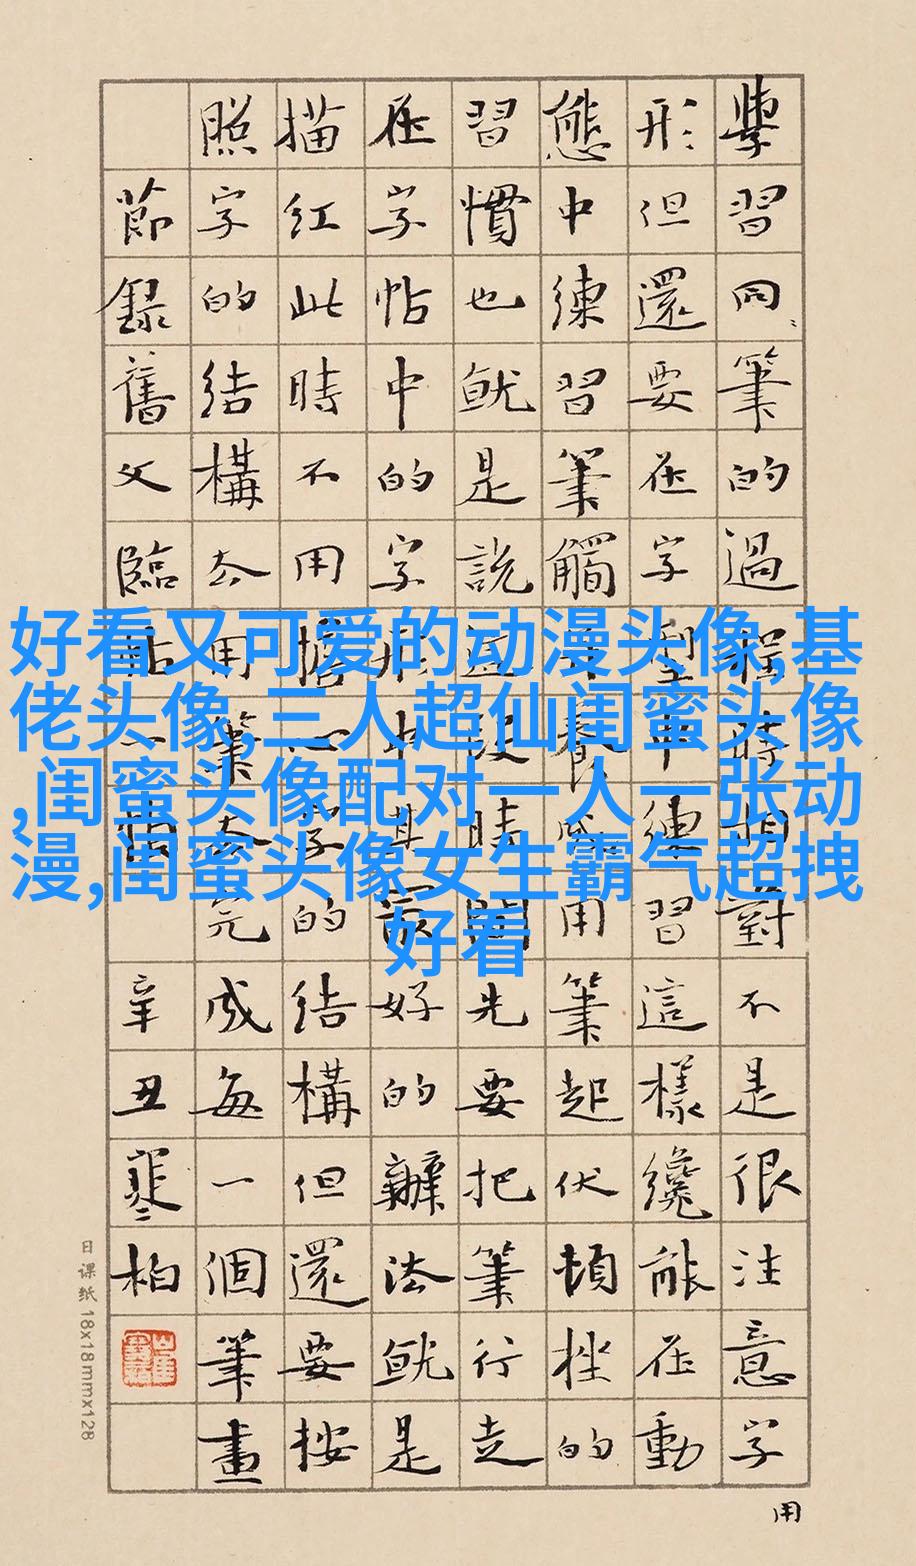 學習同筆的過程時相對不是很注意字
形但還要在字型中練習這樣纔能在動
態中練習筆觸養成用筆起伏頓挫的
習慣也就是說這段時間先要把筆行走
在字帖中的字形中其最好的辦法就是
描紅此時不用擔心字的結構但還要按
照字的結構去用筆去完成每一個筆畫
節錄舊文臨帖一
辛丑寒柏
用
日课纸 18x18mmx128
好看又可爱的动漫头像,基
佬头像,三人超仙闺蜜头像
,闺蜜头像配对一人一张动
漫,闺蜜头像女生霸气超拽
好看